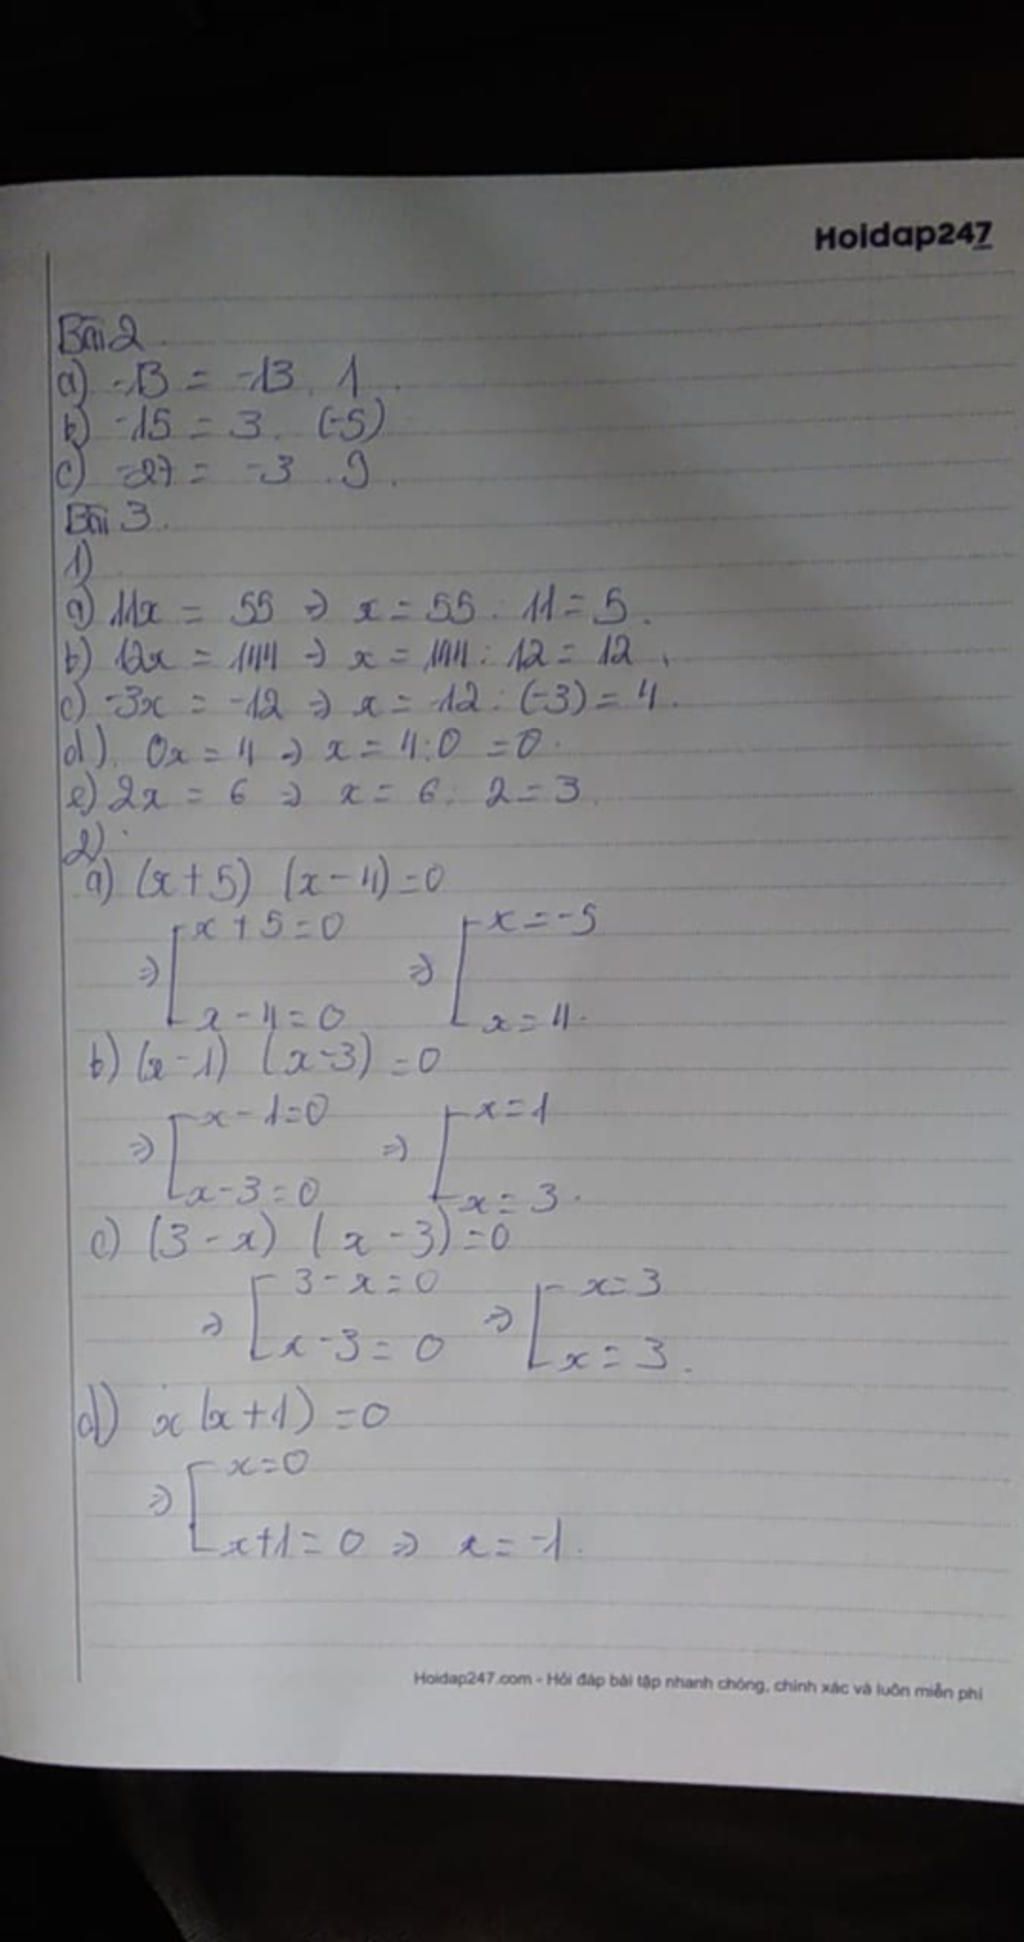 Hoidap247
Bài 2
a) -13 = -13 . 1
b) -15 = 3 . (-5)
c) -27 = -3 . 9.
Bài 3.
1)
a) 11x = 55 => x = 55 : 11 = 5.
b) 12x = 144 => x = 144 : 12 = 12.
c) -3x = -12 => x = -12 : (-3) = 4.
d). 0x = 4 => x = 4:0 = 0.
e) 2x = 6 => x = 6 : 2 = 3.
2)
a) (x+5) (x-4) = 0
x + 5 = 0 x = -5
=> [ => [
x - 4 = 0 x = 4.
b) (x-1) (x-3) = 0
x - 1 = 0 x = 1
=> [ => [
x - 3 = 0 x = 3.
c) (3-x) (x-3) = 0
3 - x = 0 x = 3
=> [ => [
x - 3 = 0 x = 3.
d) x(x+1) = 0
x = 0
=> [
x+1 = 0 => x = -1.
Hoidap247.com - Hỏi đáp bài tập nhanh chóng, chính xác và luôn miễn phí